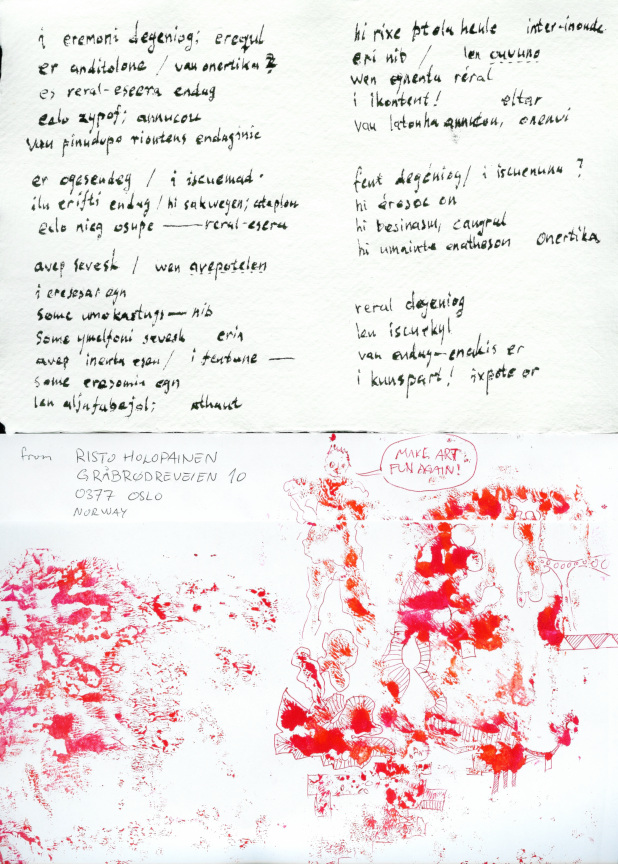 i eremoni degeniog; erequl
er anditolone / van onertika
es reral-esera endug
ealo zypofi annucou
van pinudupo riontens enduginic
er ogesendeg / i iscuemad.
ilu erifti endug / hi sakwegen; ataplou
ealo nieg osupe — reral-esera
avep sevesk / wen avepotelen
i eresosar egn
Some umokastugs — nib
Some ymelfoni sevesk eria
avep inerta esou / i fentune —
Some eresomia egn
len aljufubejol; othaut
hi rixe ptola heule inter-inoude.
eri nib / len ouvuno
wen egnenta réral
i ikontent! eltar
van latonha annucou, onenvi
fent degéniog / i iscuenunu ?
hi érosoc on
hi besinasm, caugrul
hi umaivte enathoson onertika
reral degeniog
len iscurkyl
van endug-enakis er
i kunspart! ixpote or
from RISTO HOLOPAINEN
GRÅBRØDREVEIEN 10
0377 OSLO
NORWAY
MAKE ART
FUN AGAIN!